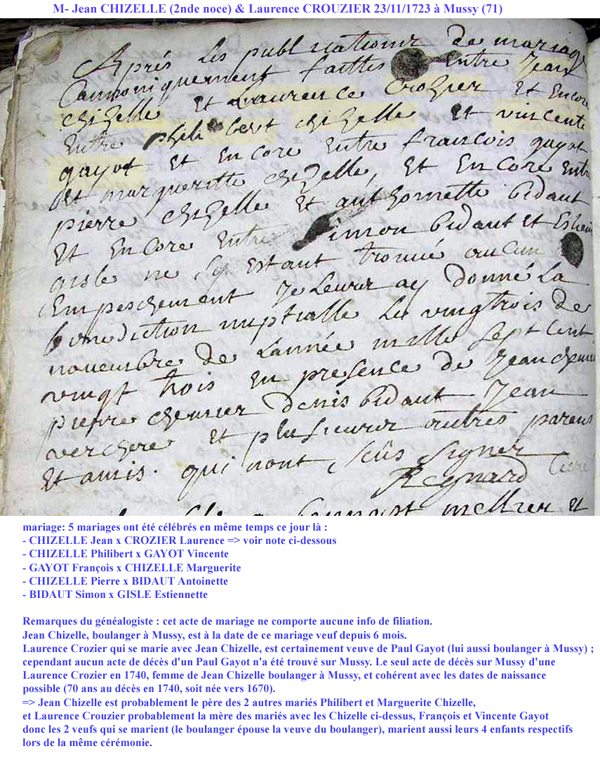 M- Jean CHIZELLE (2nde noce) & Laurence CROUZIER 23/11/1723 à Mussy (71)
Aprés les publications de mariage
Cannoniquement faittes Entre Jean
chizelle Et Laurence Crozier Et Encore
Entre philibert chizelle Et vincente
gayot Et En core Entre francois gayot
Et margueritte chizelle, Et En Core Entre
pierre chizelle Et anthoinette bidaut
Et En Core Entre Simon bidaut Et
gisle ne sy Estant trouvé aucun
Empeschement Je leur ay donné La
benediction nuptialle Le vingtrois de
novembre de Lannée mille sept cent
vingt trois En presence de Jean
pierre denis bidaut Jean
verchere Et plusieurs autres parens
Et amis. qui nont sçûs signer
Regnard
mariage: 5 mariages ont été célébrés en même temps ce jour là :
- CHIZELLE Jean x CROZIER Laurence => voir note ci-dessous
- CHIZELLE Philibert x GAYOT Vincente
- GAYOT François x CHIZELLE Marguerite
- CHIZELLE Pierre x BIDAUT Antoinette
- BIDAUT Simon x GISLE Estiennette
Remarques du généalogiste : cet acte de mariage ne comporte aucune info de filiation.
Jean Chizelle, boulanger à Mussy, est à la date de ce mariage veuf depuis 6 mois.
Laurence Crozier qui se marie avec Jean Chizelle, est certainement veuve de Paul Gayot (lui aussi boulanger à Mussy) ;
cependant aucun acte de décès d'un Paul Gayot n'a été trouvé sur Mussy. Le seul acte de décès sur Mussy d'une
Laurence Crozier en 1740, femme de Jean Chizelle boulanger à Mussy, et cohérent avec les dates de naissance
possible (70 ans au décès en 1740, soit née vers 1670).
=> Jean Chizelle est probablement le père des 2 autres mariés Philibert et Marguerite Chizelle,
et Laurence Crouzier probablement la mère des mariés avec les Chizelle ci-dessus, François et Vincente Gayot
donc les 2 veufs qui se marient (le boulanger épouse la veuve du boulanger), marient aussi leurs 4 enfants respectifs
lors de la même cérémonie.